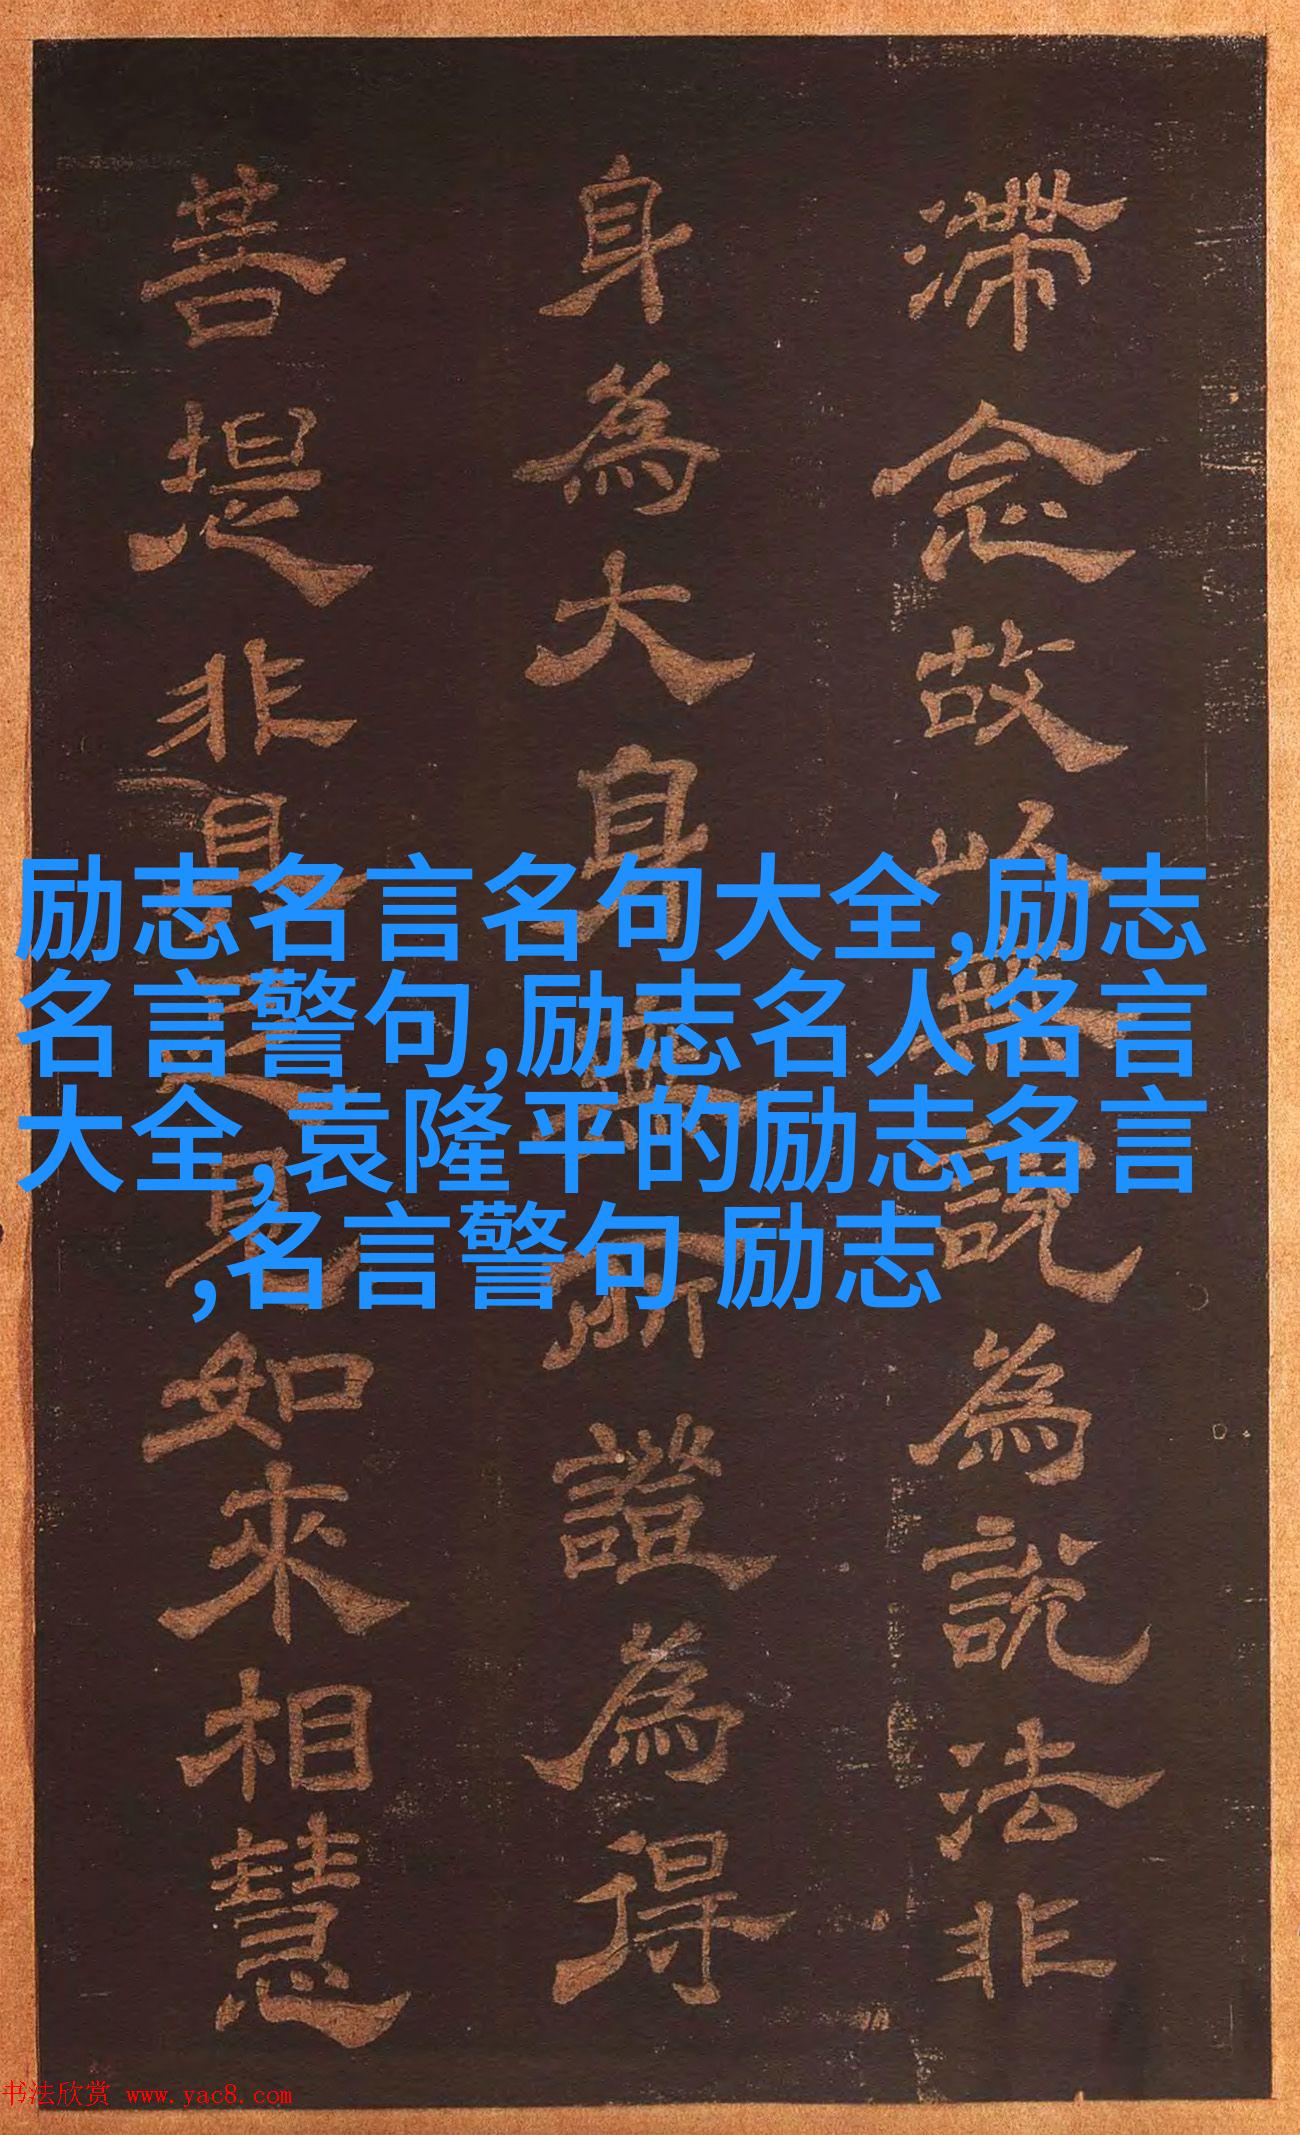 滯念故以無說為說法非
身為大身無所證為得
菩提非見之見如來相慧
励志名言名句大全,励志
名言警句,励志名人名言
大全,袁隆平的励志名言
,名言警句 励志
书法欣赏 www.yac8.com